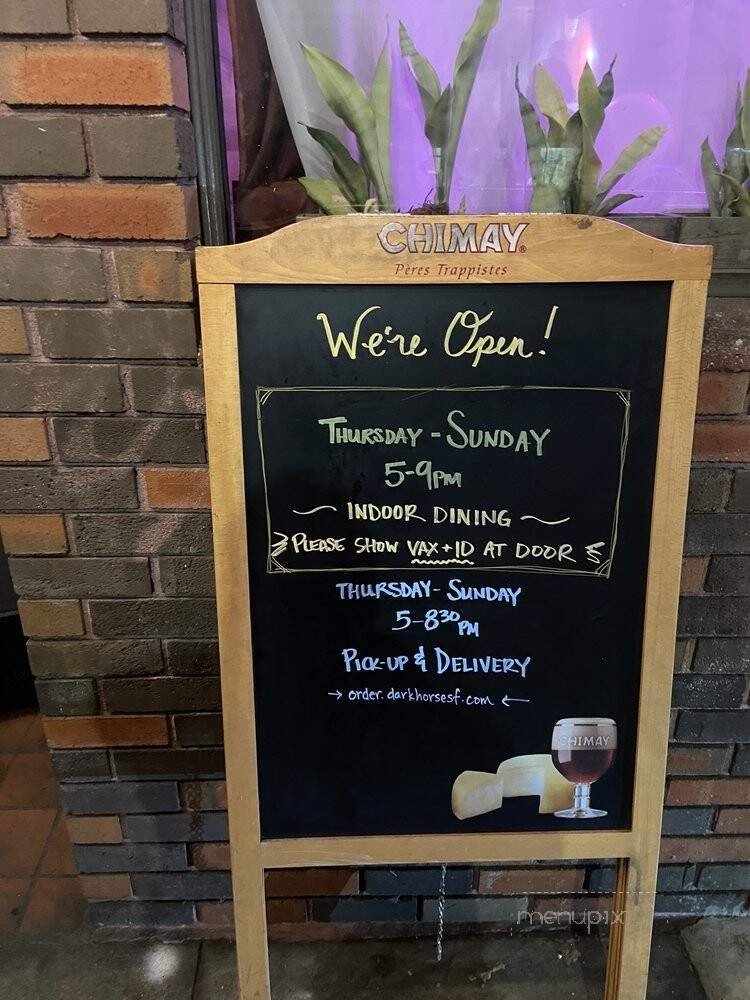 CHIMAY®
Pères Trappistes
We're Open!
THURSDAY - SUNDAY
5-9PM
~ INDOOR DINING ~
PLEASE SHOW VAX + ID AT DOOR
THURSDAY - SUNDAY
5-8³⁰ PM
PICK-UP & DELIVERY
→ order.darkhorsesf.com ←
CHIMAY
menupix